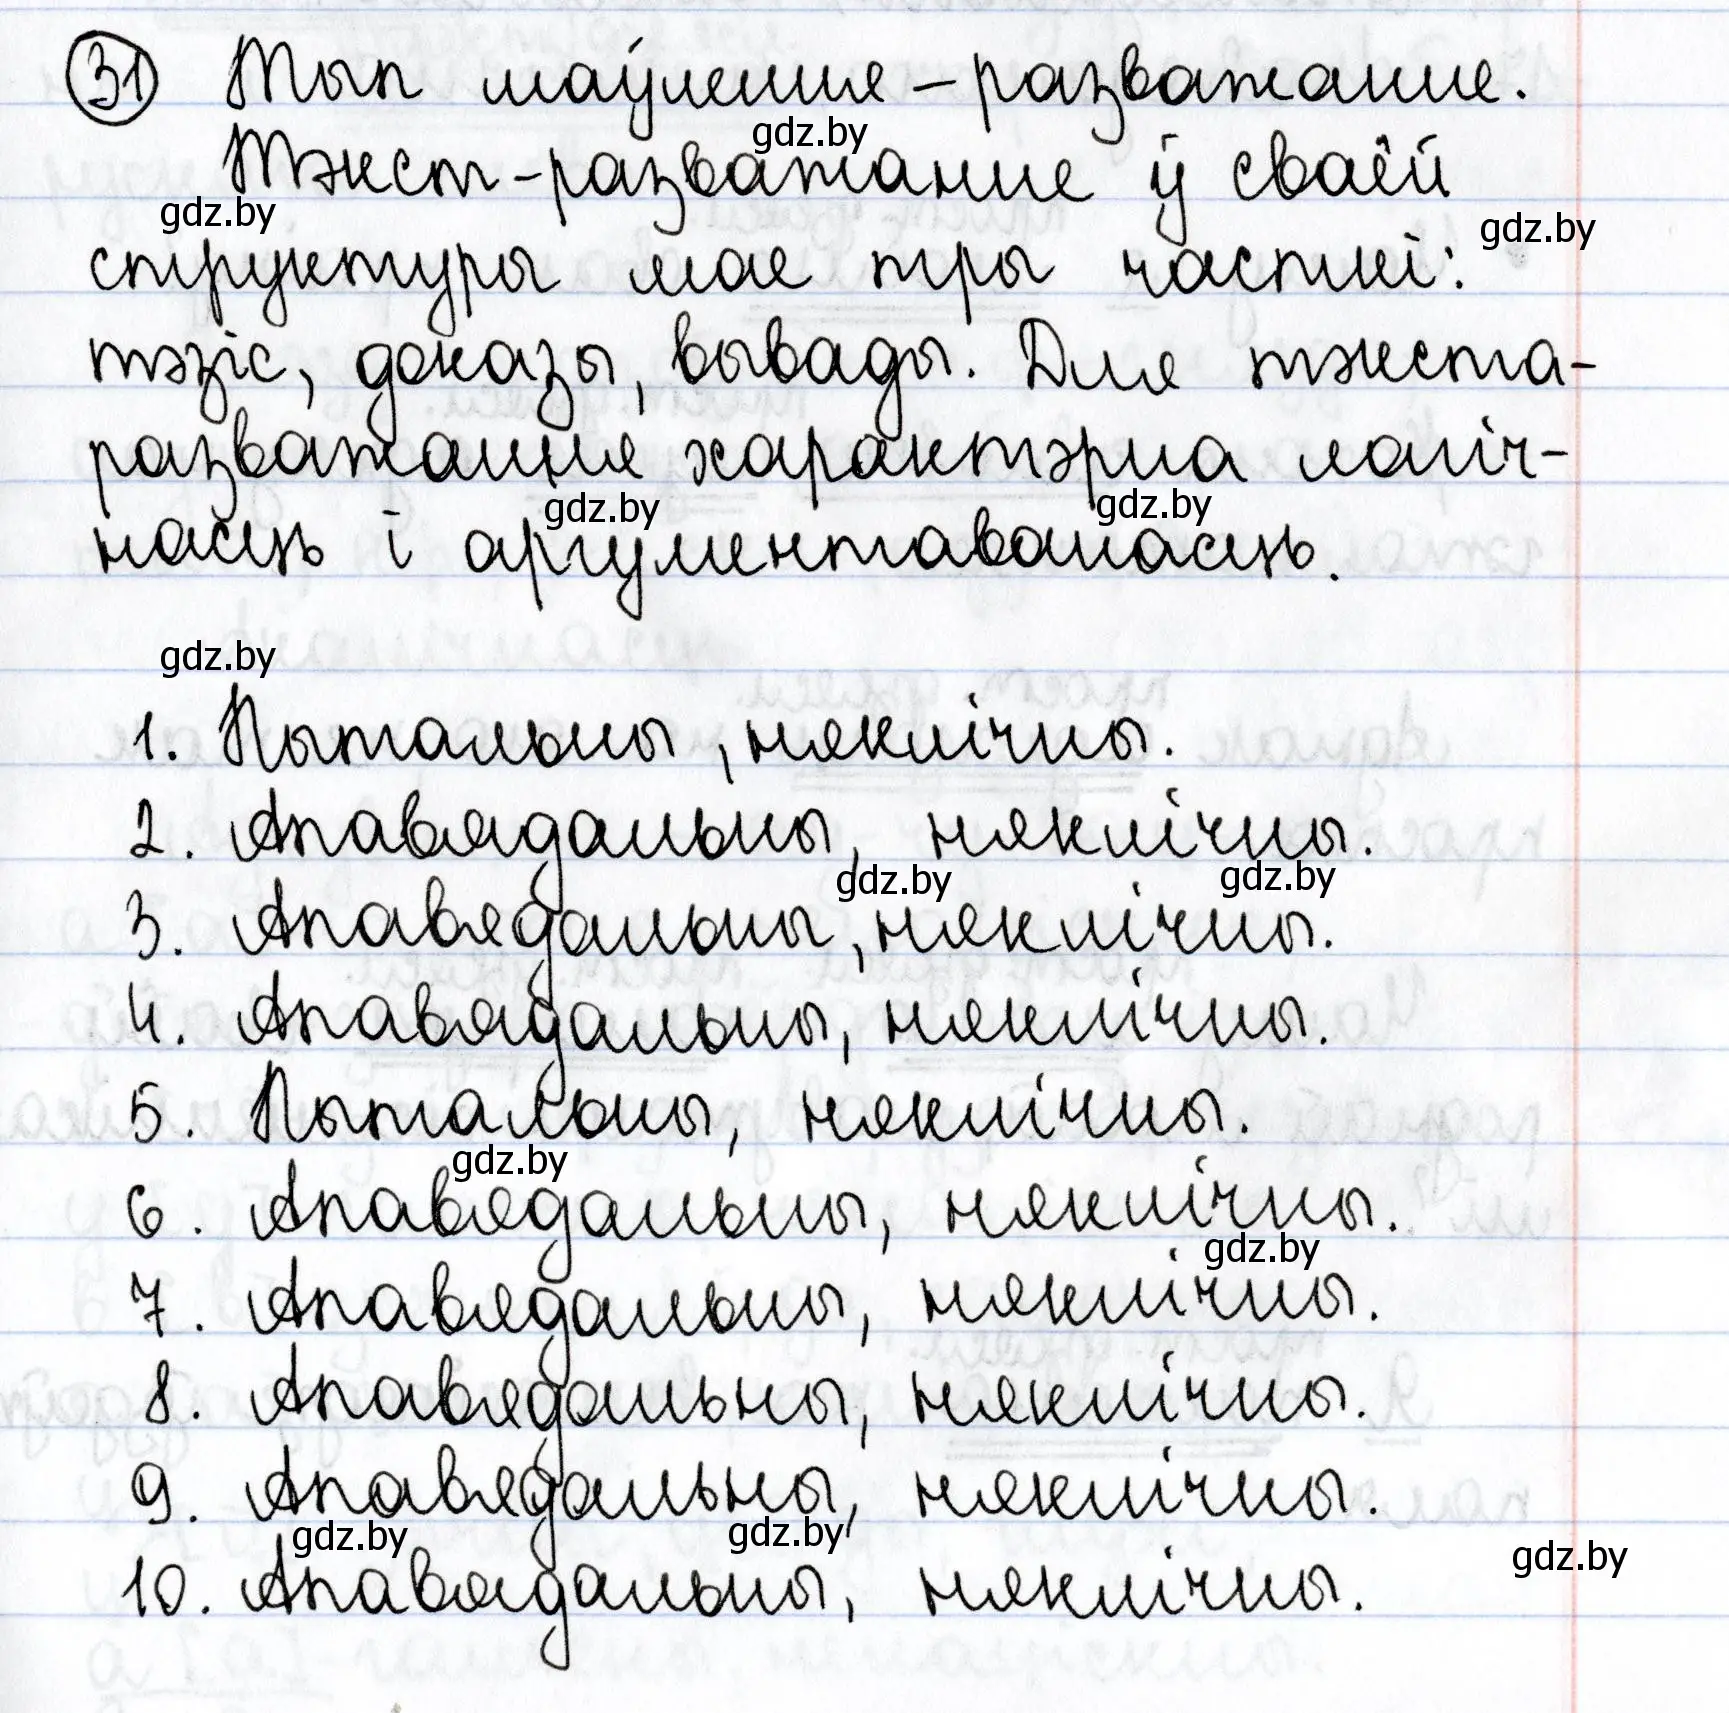 31 Тып маўлення – разважанне.
gdz.by
Тэкст-разважанне ў сваёй
gdz.by
gdz.by
структуры мае тры часткі:
тэзіс, доказы, вывады. Для тэкста-
разважання характэрна лагіч-
gdz.by gdz.by
насць і аргументаванасць.
gdz.by
1. Пытальны, няклічны.
2. Апавядальны, няклічны.
gdz.by gdz.by
3. Апавядальны, няклічны.
4. Апавядальны, няклічны.
5. Пытальны, няклічны.
gdz.by
6. Апавядальны, няклічны.
gdz.by
7. Апавядальны, няклічны.
8. Апавядальны, няклічны.
9. Апавядальны, няклічны.
gdz.by gdz.by
gdz.by
10. Апавядальны, няклічны.